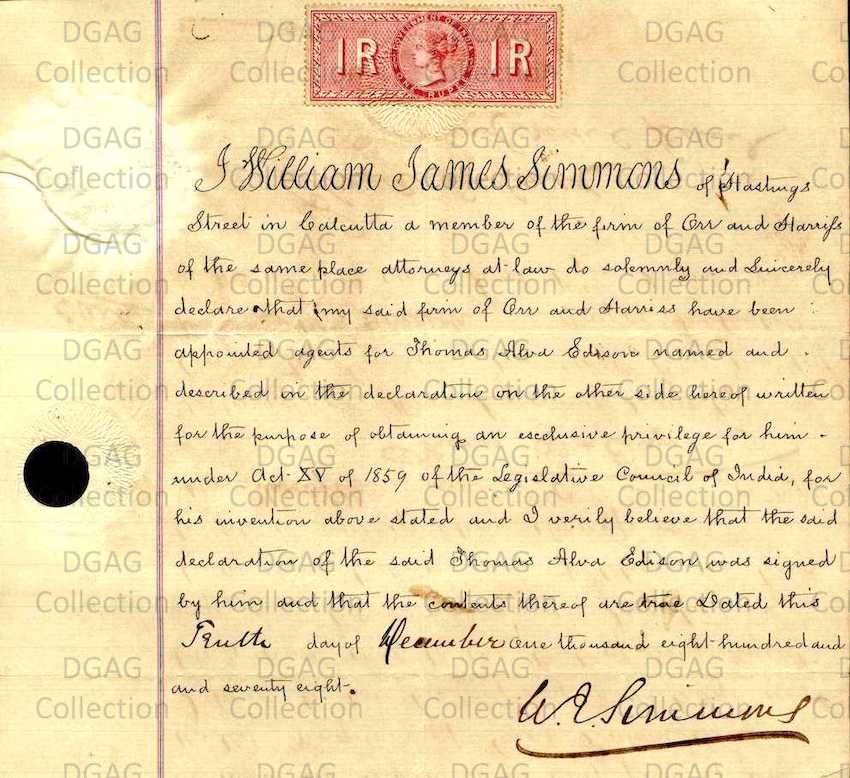 1R GOVERNMENT OF INDIA ONE RUPEE 1R
I William James Simmons of Hastings
Street in Calcutta a member of the firm of Orr and Harriss
of the same place attorneys at law do solemnly and Sincerely
declare that my said firm of Orr and Harriss have been
appointed agents for Thomas Alva Edison named and
described in the declaration on the other side hereof written
for the purpose of obtaining an exclusive privilege for him
under Act XV of 1859 of the Legislative Council of India, for
his invention above stated and I verily believe that the said
declaration of the said Thomas Alva Edison was signed
by him and that the contents thereof are true Dated this
Tenth day of December one thousand eight hundred and
and seventy eight.
W. J. Simmons
DGAG Collection